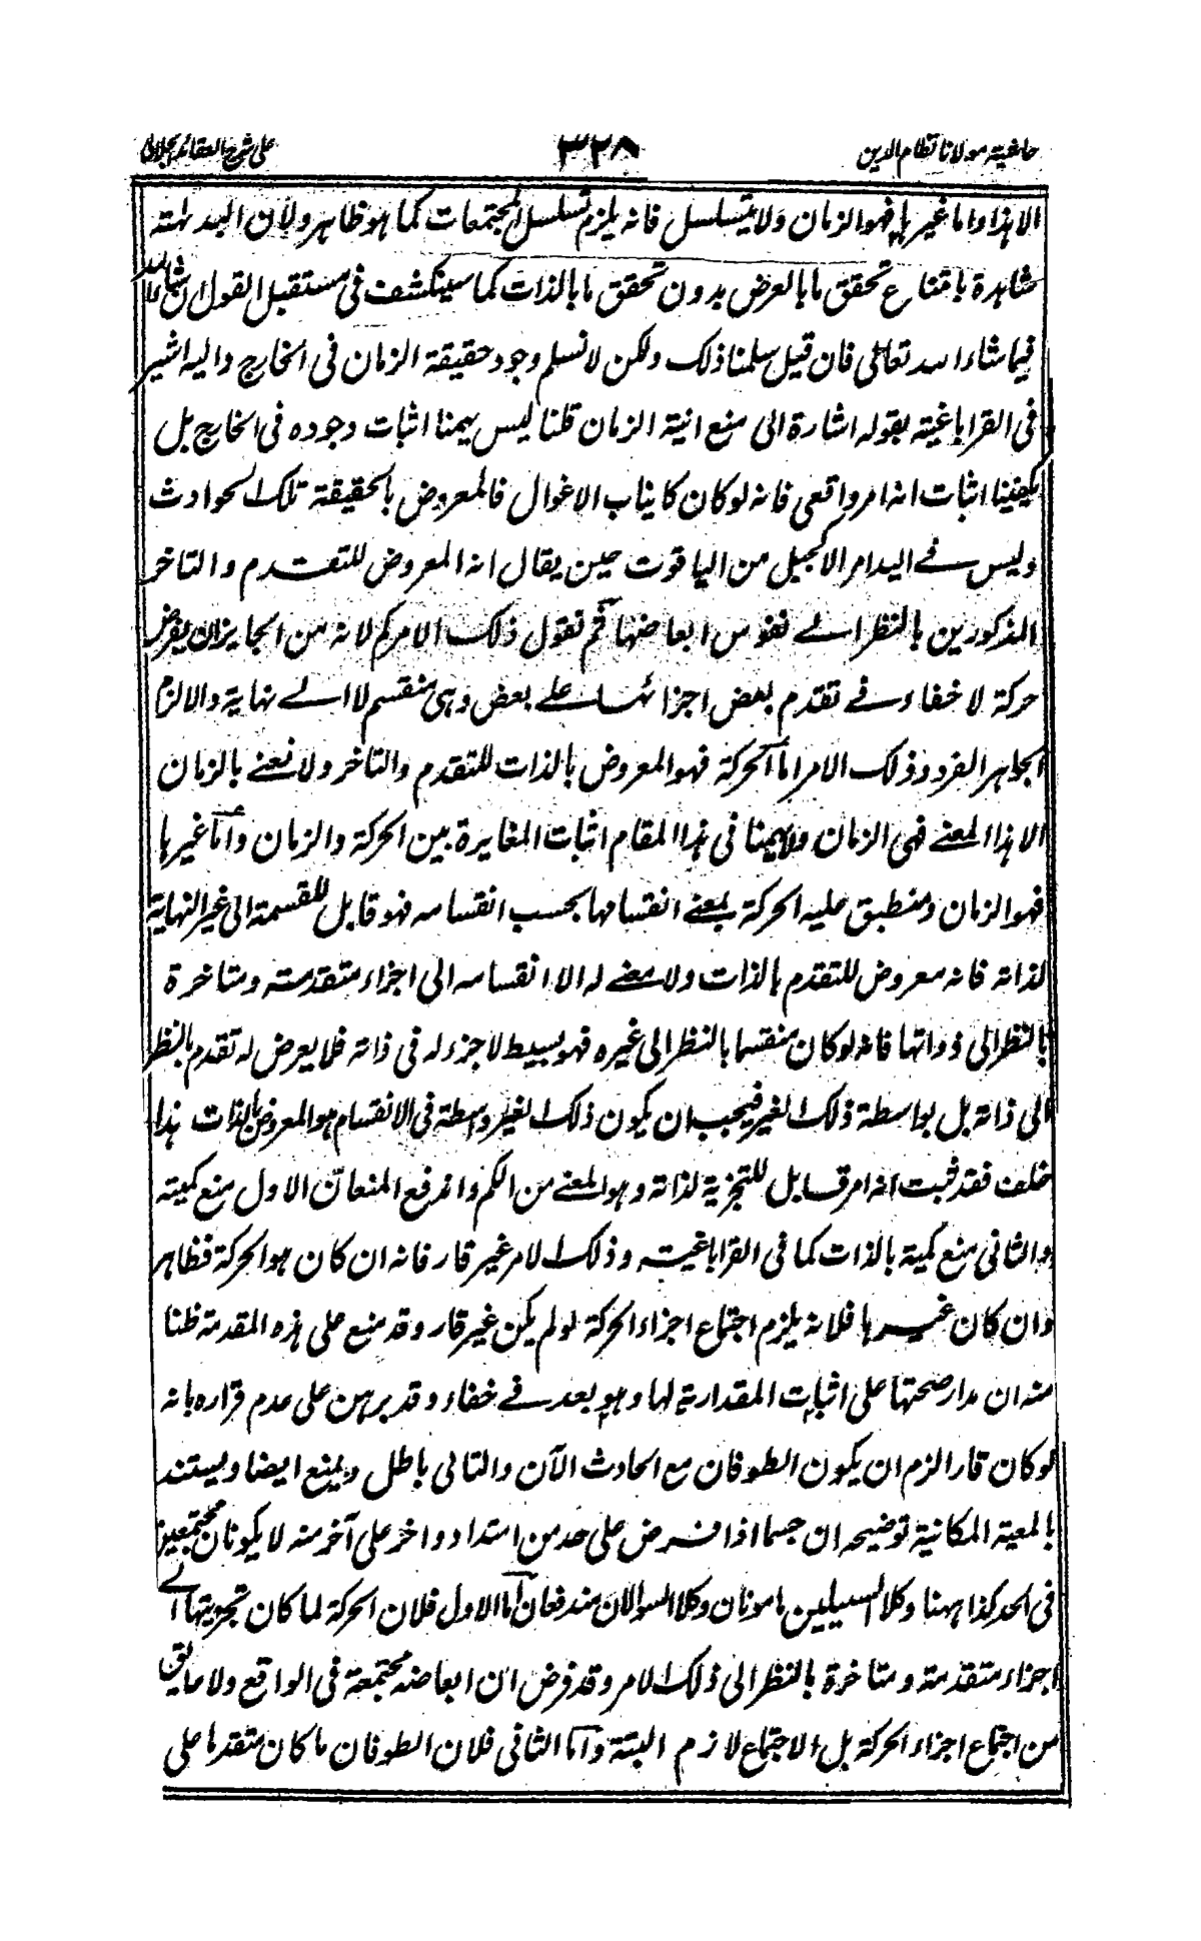 حاشية مولانا نظام الدين
٣٢٨
على شرح العقائد الجلالى
الا هذا واما غيرها فهو الزمان ولا يتسلسل فانه يلزم تسلسل المجتمعات كما هو ظاهر ولان البداهته
شاهدة بامتناع تحقق ما بالعرض بدون تحقق ما بالذات كما سينكشف فى مستقبل القول ان شاء الله
فيما شاء الله تعالى فان قيل سلمنا ذلك ولكن لا نسلم وجود حقيقة الزمان فى الخارج واليه اشير
فى القراباغية بقوله اشارة الى منع انية الزمان قلنا ليس يهمنا اثبات وجوده فى الخارج بل
يكفينا اثبات انه امر واقعى فانه لو كان كانياب الاغوال فالمعروض بالحقيقة تلك الحوادث
وليس فے اليد امر الا كجبل من الياقوت حين يقال انه المعروض للتقدم والتاخر
المذكورين بالنظر الے نفوس ابعاضها ثم نقول ذلك الامر كم لانه من الجايز ان يفرض
حركة لا خفاء فے تقدم بعض اجزائها علے بعض وهى منقسم لا الے نهاية والا لزم
الجواهر الفرد وذلك الامر اما الحركة فهو المعروض بالذات للتقدم والتاخر ولا نعنے بالزمان
الا هذا المعنے فهى الزمان ولا يهمنا فى هذا المقام اثبات المغايرة بين الحركة والزمان واما غيرها
فهو الزمان ومنطبق عليه الحركة بمعنے انقسامها بحسب انقسامه فهو قابل للقسمة الى غير النهاية
لذاته فانه معروض للتقدم بالذات ولا معنے له الا انقسامه الى اجزاء متقدمته ومتاخرة
بالنظر الى ذواتها فانه لو كان منقسما بالنظر الى غيره فهو بسيط لا جزء له فى ذاته فلا يعرض له تقدم بالنظر
الى ذاته بل بواسطة ذلك الغير فيجب ان يكون ذلك الغير واسطة فى الانقسام هو المعروض بالذات هذا
خلف فقد ثبت انه امر قابل للتجزية لذاته وهو المعنے من الكم واندفع المنعان الاول منع كميته
والثانى منع كمية بالذات كما فى القراباغيته وذلك الامر غير قار فانه ان كان هو الحركة فظاهر
وان كان غيرها فلانه يلزم اجتماع اجزاء الحركة لو لم يكن غير قار وقد منع على هذه المقدمة ظنا
منه ان مدار صحتها على اثبات المقدارية لها وهو بعد فے خفاء وقد برهن على عدم قراره بانه
لو كان قارا لزم ان يكون الطوفان مع الحادث الآن والتالى باطل ويمنع ايضا ويستند
بالمعية المكانية توضيحه ان جسما اذا فرض على حد من امتداد واخر على آخر منه لا يكونان مجتمعين
فى الحد كذا ههنا وكلا السبيلين مامونان وكلا السوالان مندفعان اما الاول فلان الحركة لما كان تجزيتها الے
اجزاء متقدمة ومتاخرة بالنظر الى ذلك الامر وقد فرض ان ابعاضه مجتمعة فى الواقع ولا عايق
من اجتماع اجزاء الحركة بل الاجتماع لازم البتة واما الثانى فلان الطوفان ما كان متقدما على